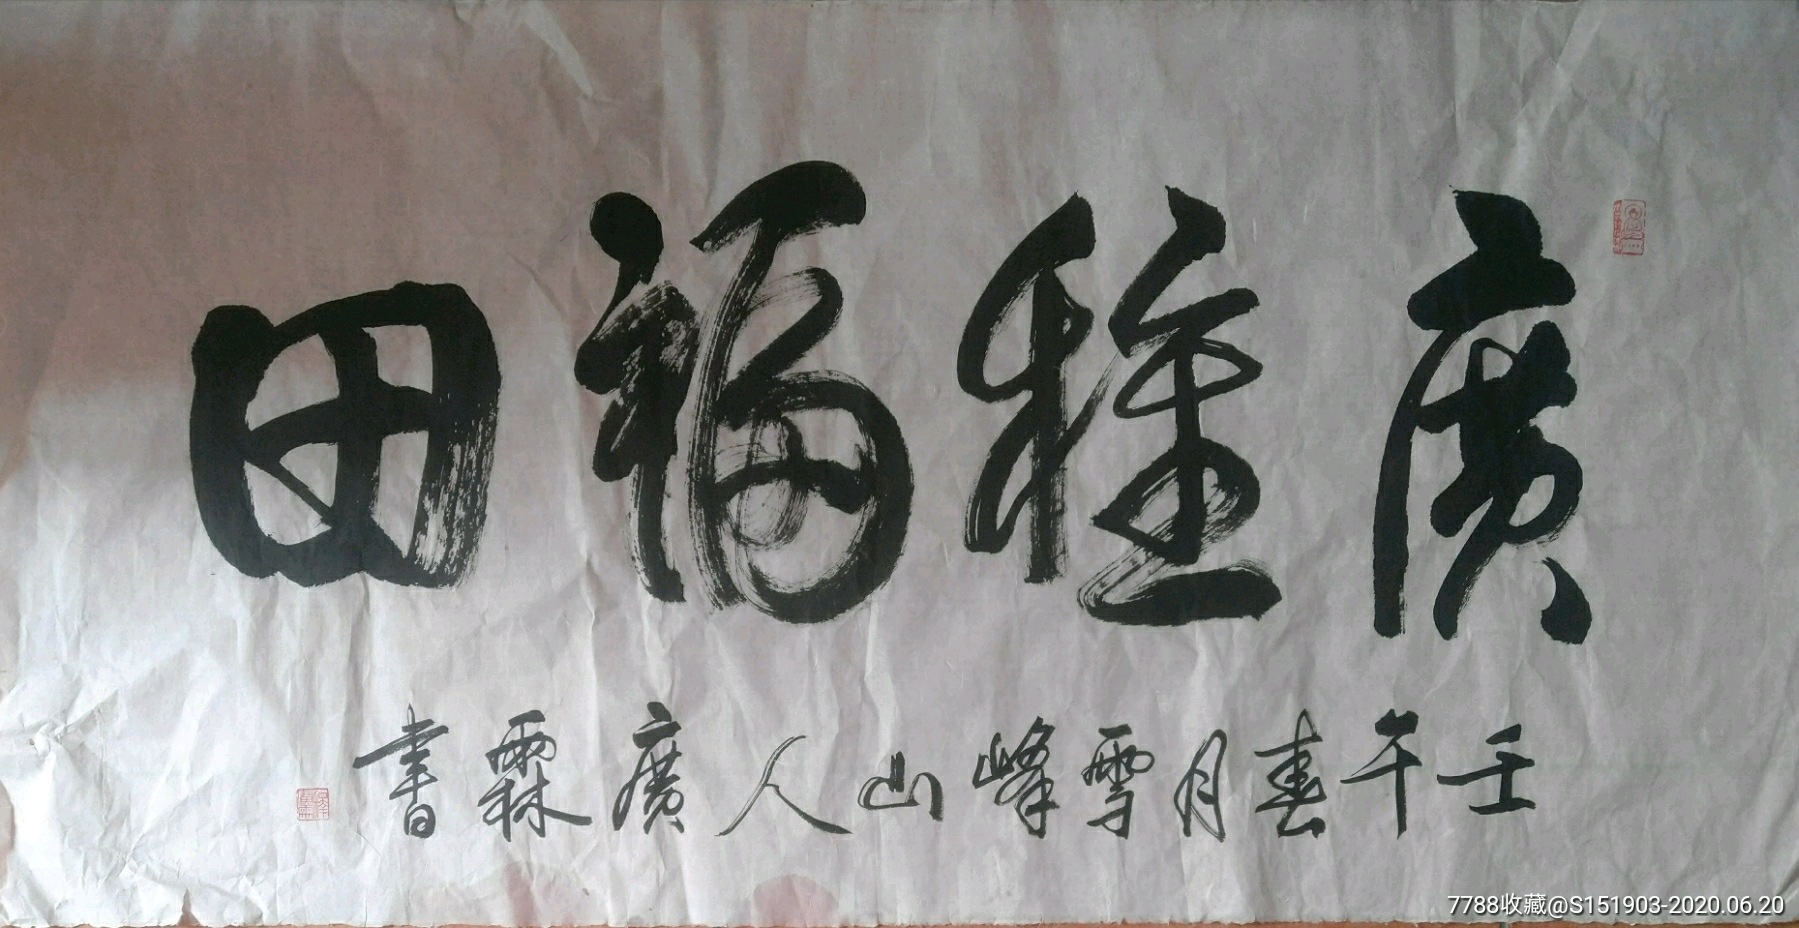 廣種福田
壬午春月雪峰山人廣霖書
7788收藏@S151903-2020.06.20